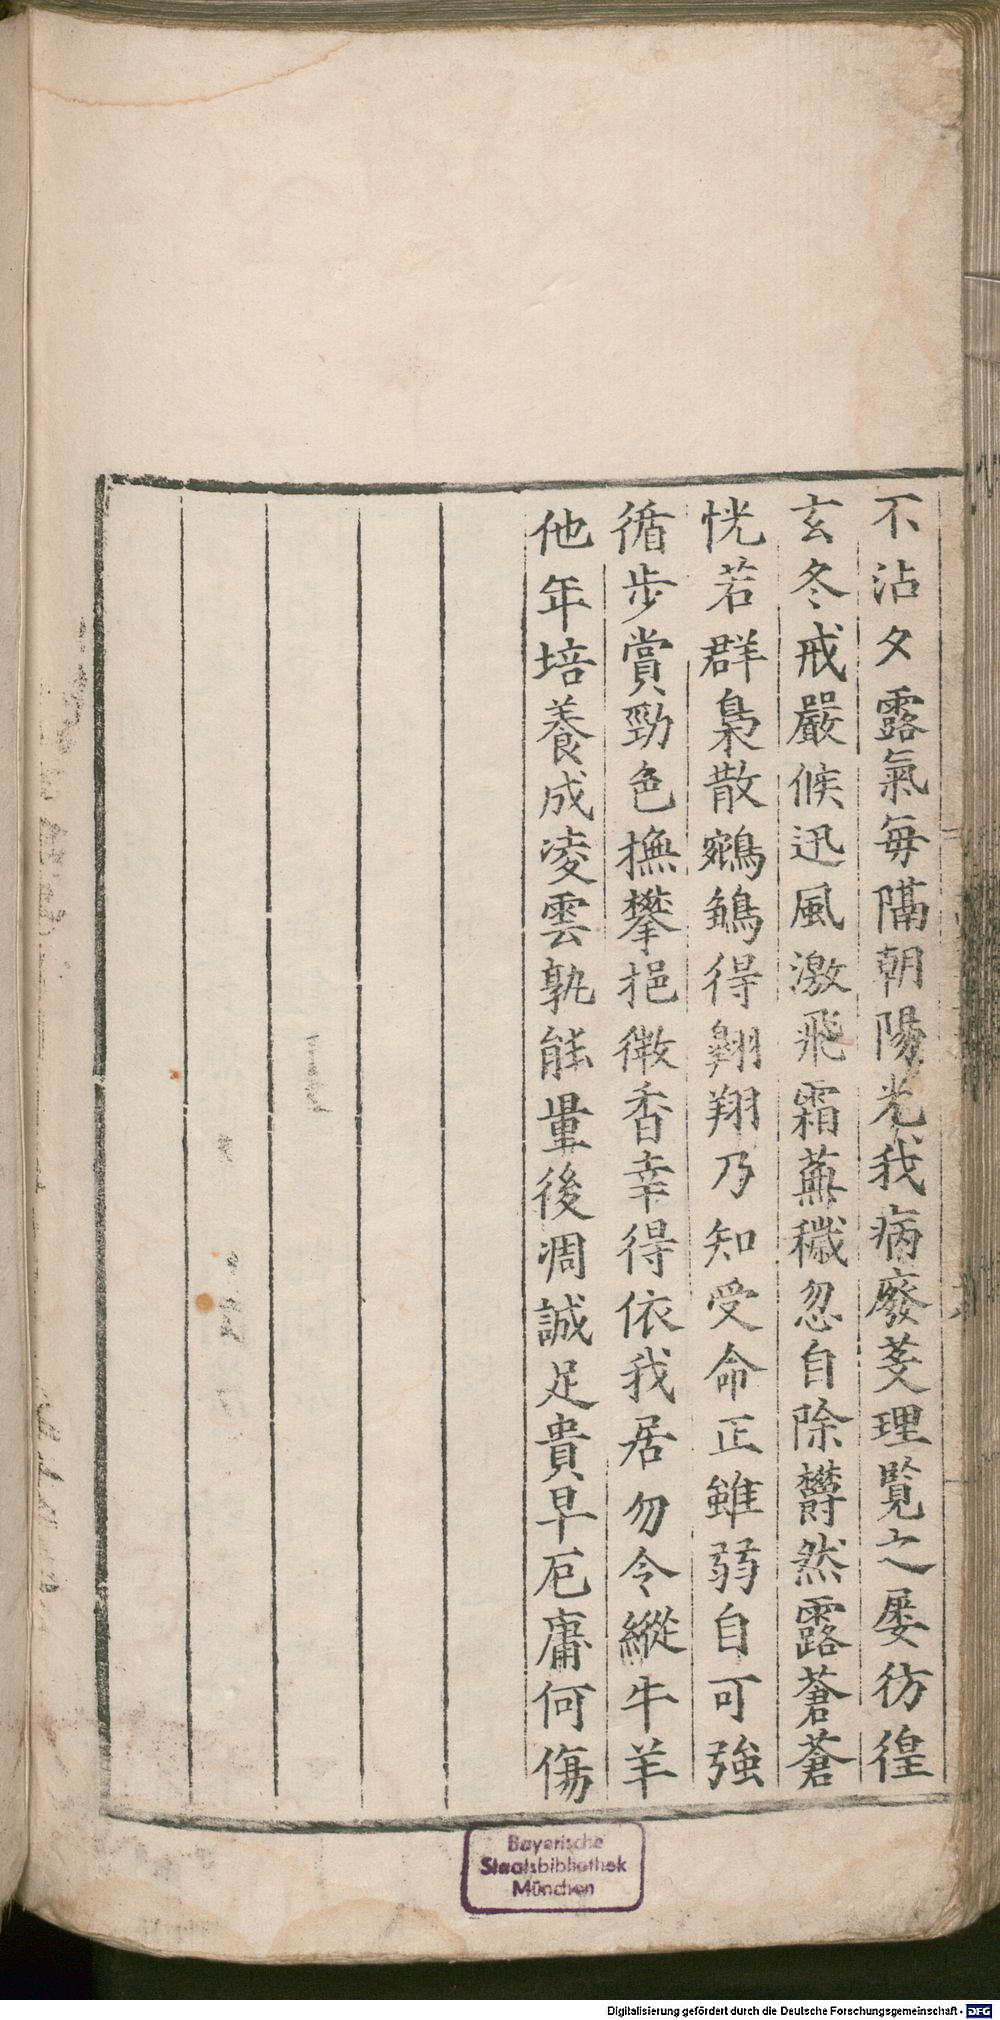 不沾夕露氣毎隔朝陽光我病廢芟理覽之屡彷徨
玄冬戒嚴候迅風激飛霜蕪穢忽自除欝然露蒼蒼
恍若群梟散鵷鶵得翱翔乃知受命正雖弱自可強
循步賞勁色撫攀挹微香幸得依我居勿令縱牛羊
他年培養成凌雲孰能量後凋誠足貴早厄庸何傷
Bayerische
Staatsbibliothek
München
Digitalisierung gefördert durch die Deutsche Forschungsgemeinschaft - DFG